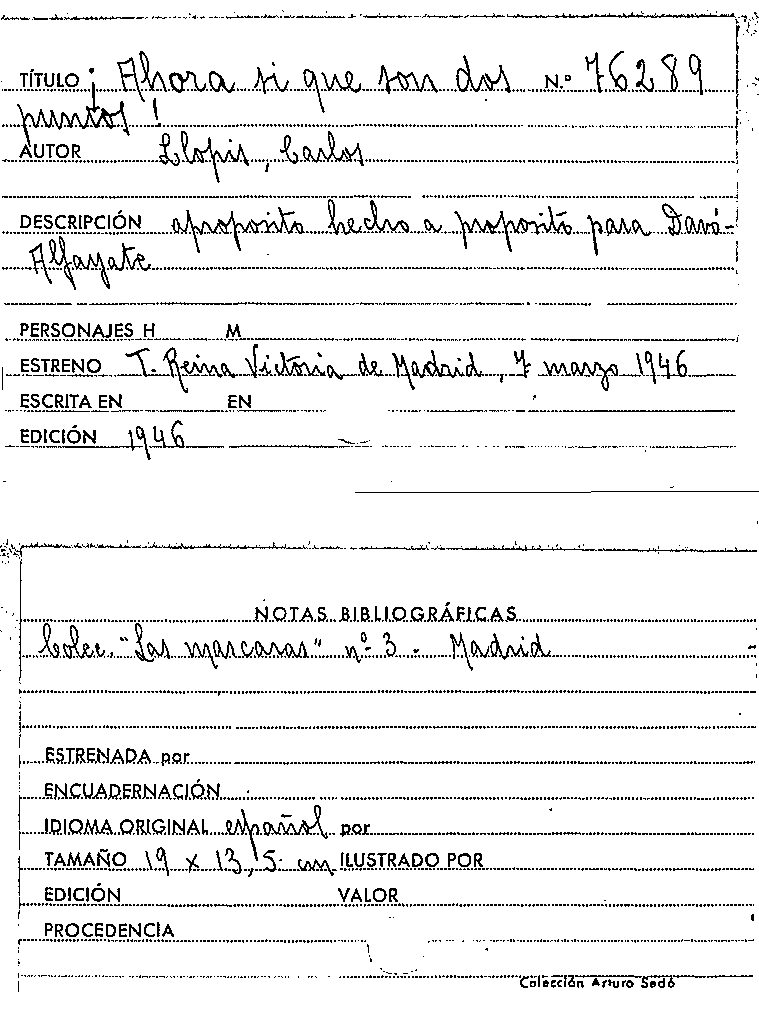 TÍTULO ¡Ahora si que son dos N.º 76289
puntos!
AUTOR Llopis, Carlos
DESCRIPCIÓN aproposito hecho a proposito para Davó-
Alfayate
PERSONAJES H M
ESTRENO T. Reina Victoria de Madrid, 7 marzo 1946
ESCRITA EN EN
EDICIÓN 1946
NOTAS BIBLIOGRÁFICAS
Colec. "Las mascaras" nº 3 - Madrid
ESTRENADA por
ENCUADERNACIÓN
IDIOMA ORIGINAL español por
TAMAÑO 19 x 13,5 cm ILUSTRADO POR
EDICIÓN VALOR
PROCEDENCIA
Colección Arturo Sedó